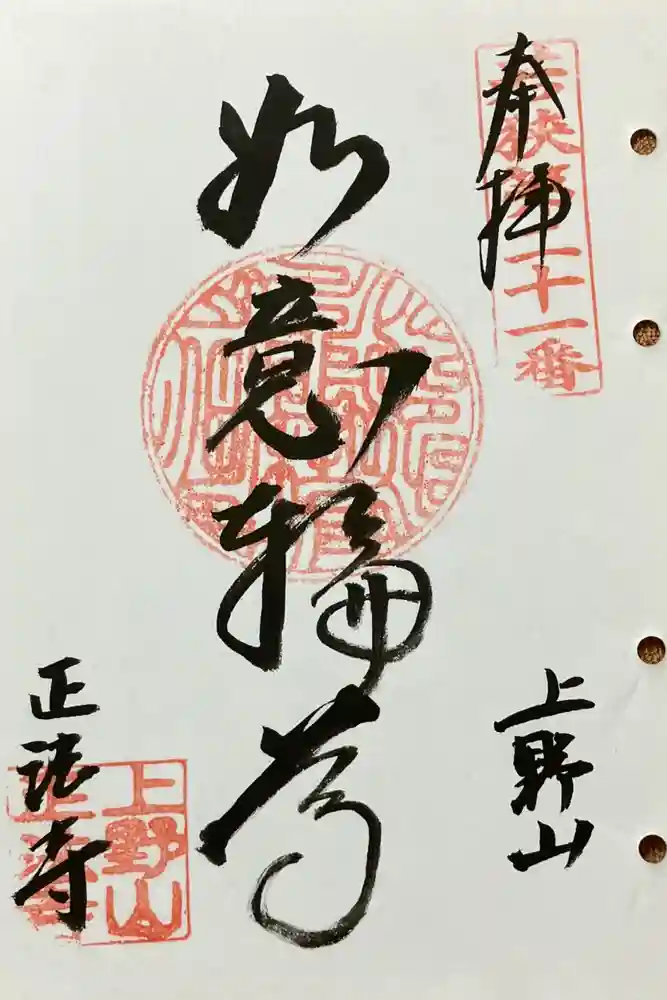 奉拝
若狭第二十一番
上野山
如意輪尊
正法寺
上野山
正法寺